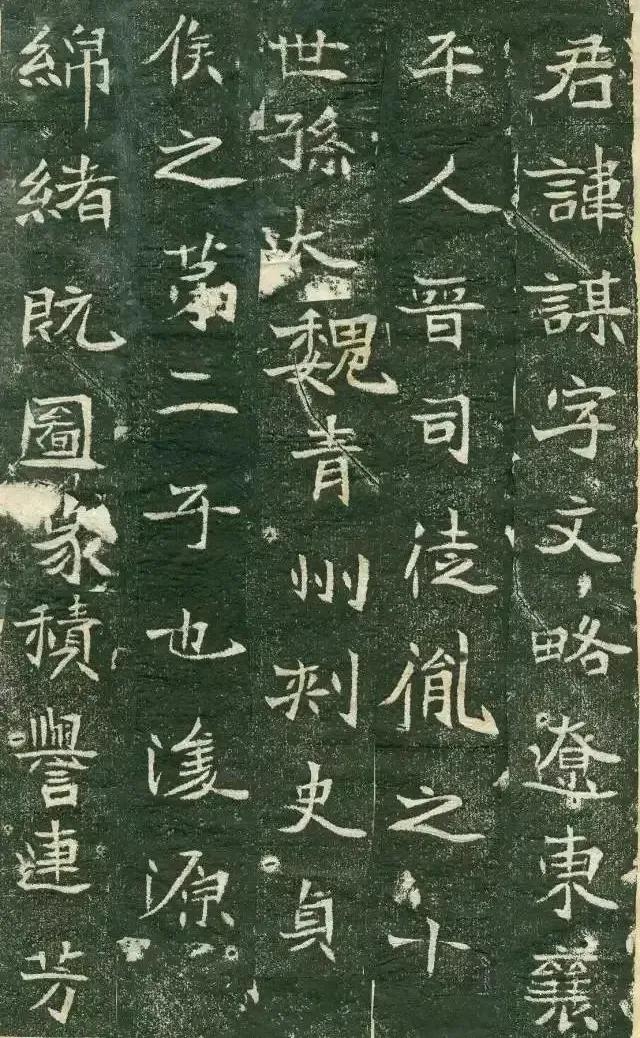 君諱謀字文略遼東襄
平人晉司徒胤之十
世孫大魏青州刾史貞
侯之苐二子也浚源
綿緒既圖象積譽連芳